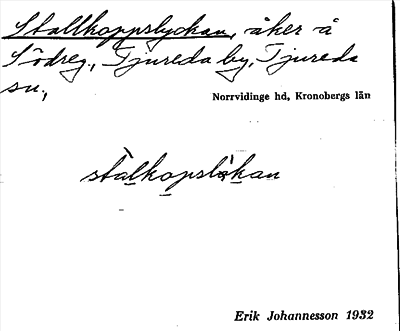 Stallkoppslyckan, åker å
Södreg., Tjureda by, Tjureda
sn.,
Norrvidinge hd, Kronobergs län
stàlkopslỳkan
Erik Johannesson 1932